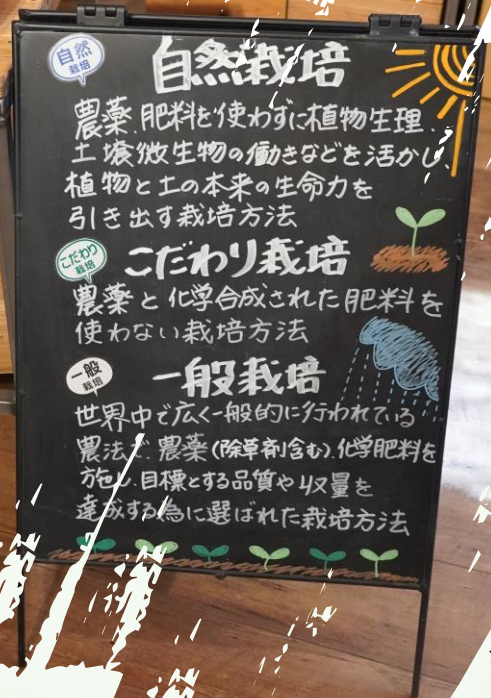 自然
栽培
自然栽培
農薬、肥料を使わずに植物生理、
土壌微生物の働きなどを活かし、
植物と土の本来の生命力を
引き出す栽培方法
こだわり
栽培
こだわり栽培
農薬と化学合成された肥料を
使わない栽培方法
一般
栽培
一般栽培
世界中で広く一般的に行われている
農法で、農薬(除草剤含む)、化学肥料を
施し、目標とする品質や収量を
達成する為に選ばれた栽培方法